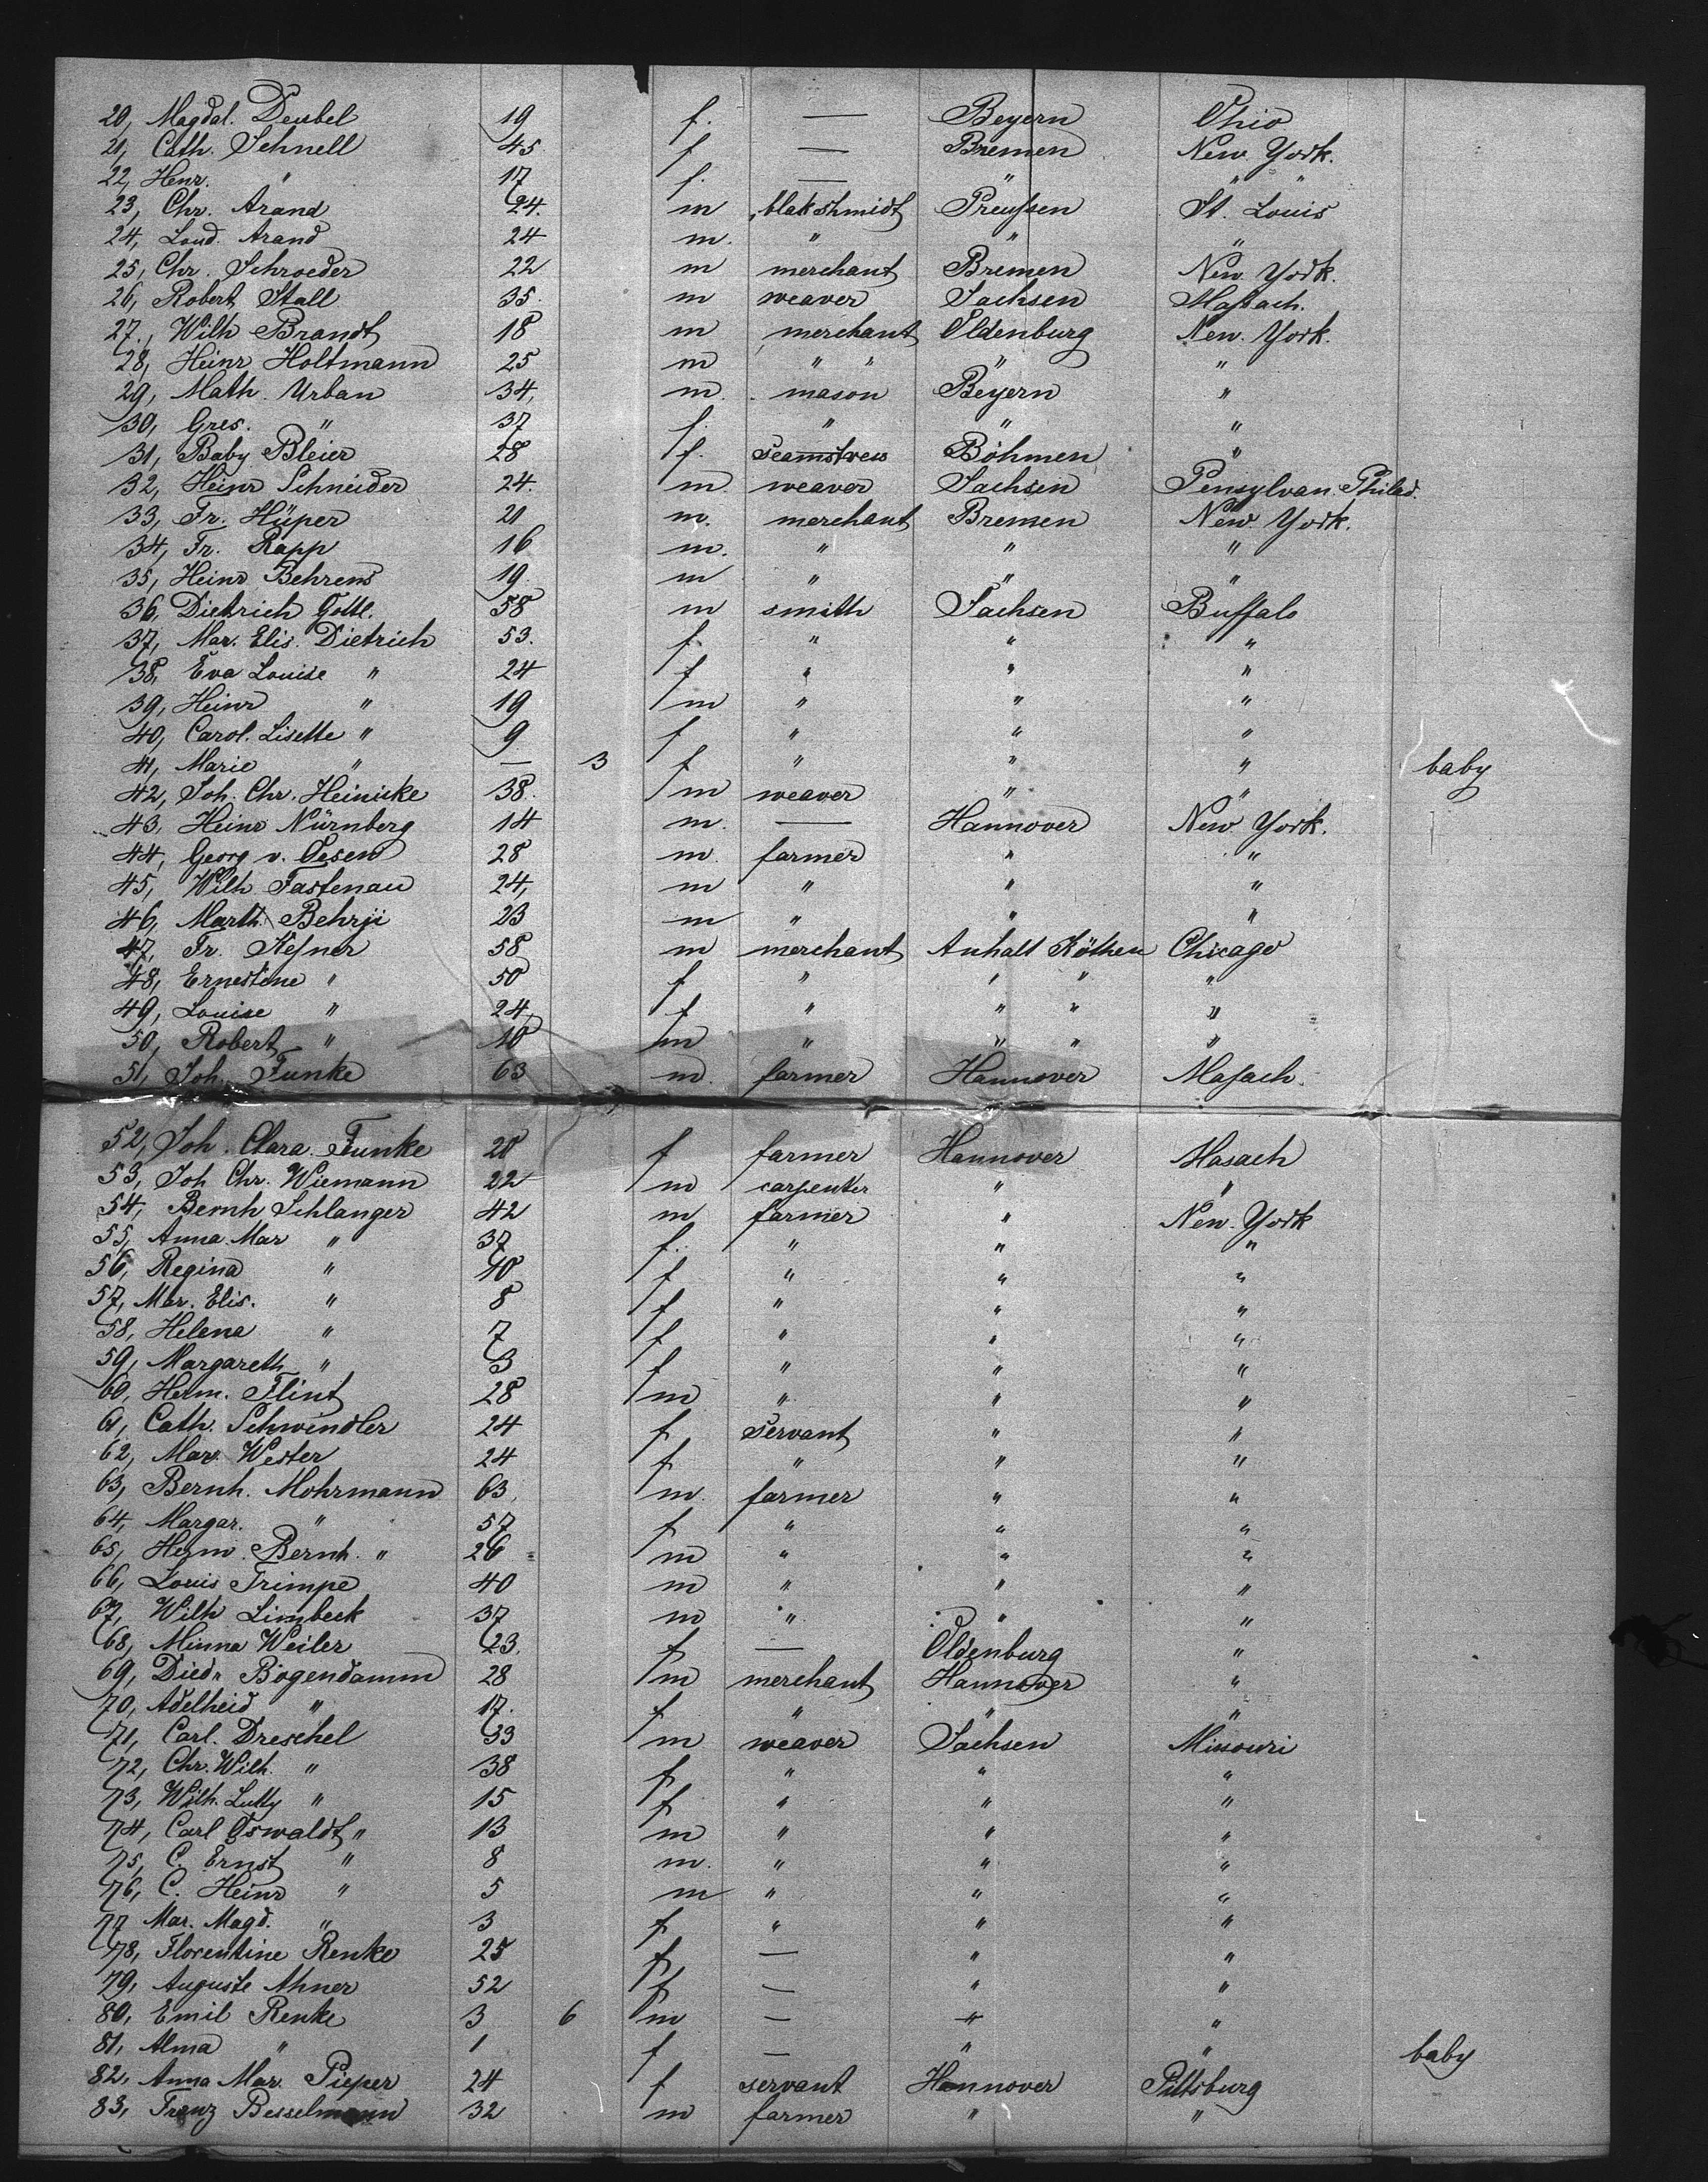 20, Magdal. Deubel 19 f. — Beyern Ohio
21, Cath. Schnell 45 f — Bremen New York.
22, Henr. " 17 f. — " " "
23, Chr. Arand 24. m blakshmidt Preußen St. Louis
24, Loud. Arand 24 m. " " "
25, Chr. Schroeder 22 m merchant Bremen New York.
26, Robert Stall 35. m weaver Sachsen Maßach.
27, Wilh Brandt 18 m merchant Oldenburg New York.
28, Heinr Holtmann 25 m " " " "
29, Math. Urban 34, m. mason Beyern "
30, Gres. " 37 f. " " "
31, Baby Bleier 28 f. seamstress Böhmen "
32, Heinr Schneider 24. m. weaver Sachsen Pensylvan. Philad.
33, Fr. Hüper 21 m. merchant Bremen New York.
34, Fr. Rapp 16 m. " " "
35, Heinr Behrens 19. m " " "
36, Dietrich Gottl. 58 m smith Sachsen Buffalo
37, Mar. Elis. Dietrich 53. f. " " "
38, Eva Louise " 24 f " " "
39, Heinr " 19 m " " "
40, Carol. Lisette " 9 f " " "
41, Marie " — 3 f " " " baby
42, Joh. Chr. Heinicke 38. m weaver " "
43, Heinr Nürnberg 14 m. — Hannover New York.
44, Georg v. 28 m. farmer " "
45, Wilh Fastenau 24, m " " "
46, Marth. 23 m " " "
47, Fr. Keßner 58 m merchant Anhalt Köthen Chicago
48, Ernestine " 50 f " " " "
49, Louise " 24, f " " " "
50, Robert " 10 m " " " "
51, Joh. Funke 63 m. farmer Hannover Maßach.
52, Joh. Clara Funke 20 f farmer Hannover Masach
53, Joh Chr. Wiemann 22 m carpenter " "
54, Bernh Schlanger 42 m farmer " New York
55, Anna Mar " 37 f. " " "
56, Regina " 10 f " " "
57, Mar. Elis. " 8 f " " "
58, Helena " 7 f " " "
59, Margareth " 3 f " " "
60, Herm. Flint 28 m " " "
61, Cath. Schwindler 24 f servant " "
62, Mar. Wester 24 f " " "
63, Bernh. Mohrmann 63. m. farmer " "
64, Margar. " 57 f " " "
65, Herm. Bernh. " 26 m " " "
66, Louis Trimpe 40 m " " "
67, Wilh Limbeck 37 m " " "
68, Minna Weiler 23. f — Oldenburg "
69, Diedr Bögendamm 28 m merchant Hannover "
70, Adelheid " 17. f " " "
71, Carl. Dreschel 33 m weaver Sachsen Missouri
72, Chr. Wilh. " 38 f " " "
73, Wilh. Lutty " 15 f " " "
74, Carl Oswaldt " 13 m " " "
75, C. Ernst " 8 m. " " "
76, C. Heinr " 5 m " " "
77 Mar. Magd. " 3 f " " "
78, Florentine Renke 25 f — " "
79, Auguste Ahner 52 f — " "
80, Emil Renke 3 6 m — " "
81, Alma " 1 f — " " baby
82, Anna Mar. Pieper 24 f servant Hannover Pittsburg
83, Franz Besselmann 32 m farmer " "